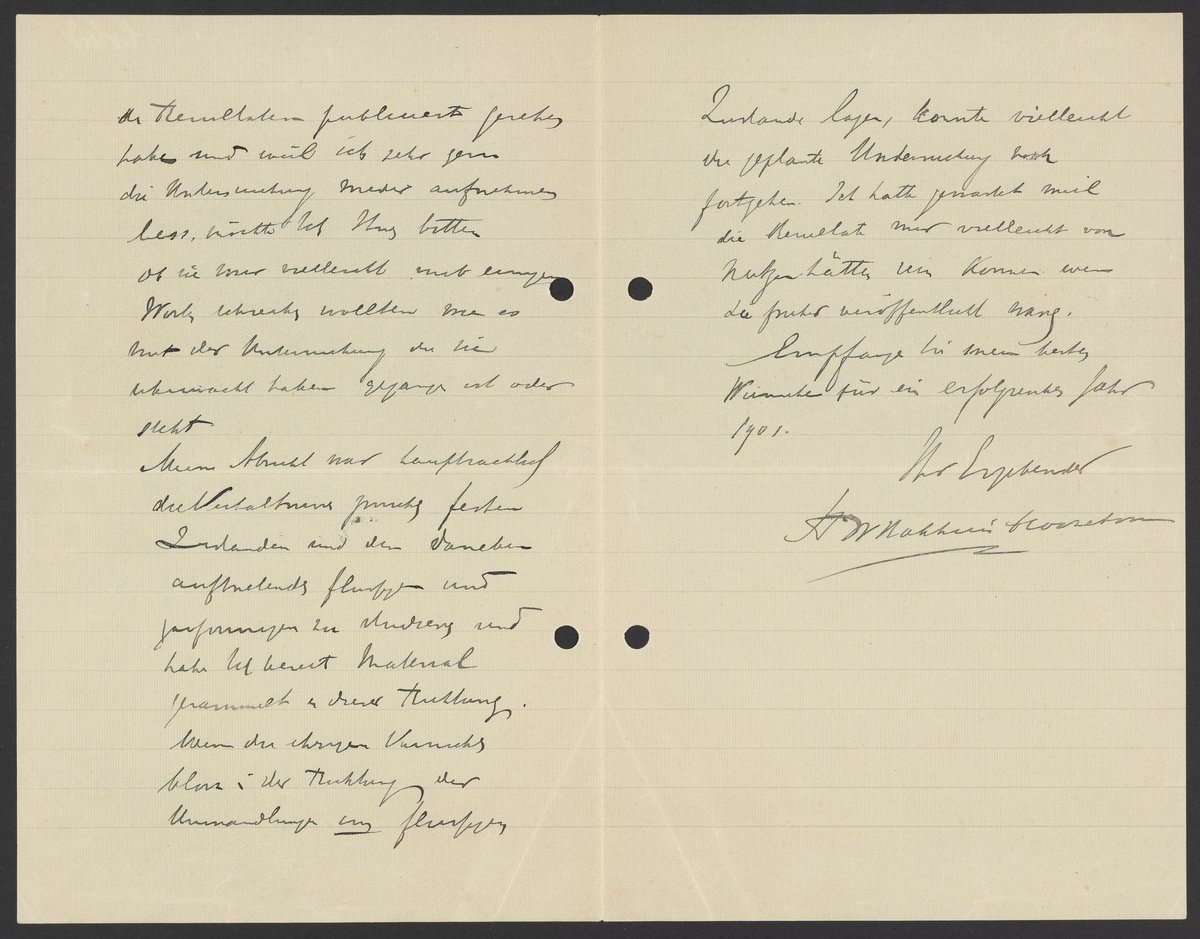 die Resultaten publiciert gesehen
habe und weil ich sehr gern
die Untersuchung wieder aufnehmen
liess, möchte Ich Ihnen bitten
ob sie mir vielleicht mit einigen
Worten schreiben wollten wie es
mit der Untersuchung die sie
gegangen ist oder
steht
Meine Absicht war hauptsachlich
die Verhaltnisse zwischen festen
Zustanden und den daneben
auftretenden flussigen und
gasformigen zu studieren und
habe Ich bereit Material
gesammelt in dieser Richtung.
Wenn die ihrigen Versuche
bloss in der Richtung der
Umwandlungen im flussigen
Zustande lagen, konnte vielleicht
die geplante Untersuchung noch
fortgehen. Ich hatte gewartet weil
die Resultate mir vielleicht von
Nutzen hätten sein konnen wenn
sie fruher veröffentlicht waren.
Empfangen Sie meine besten
Wunsche für ein erfolgreiches Jahr
1901.
Ihr Ergebender
H W Bakhuis Roozeboom